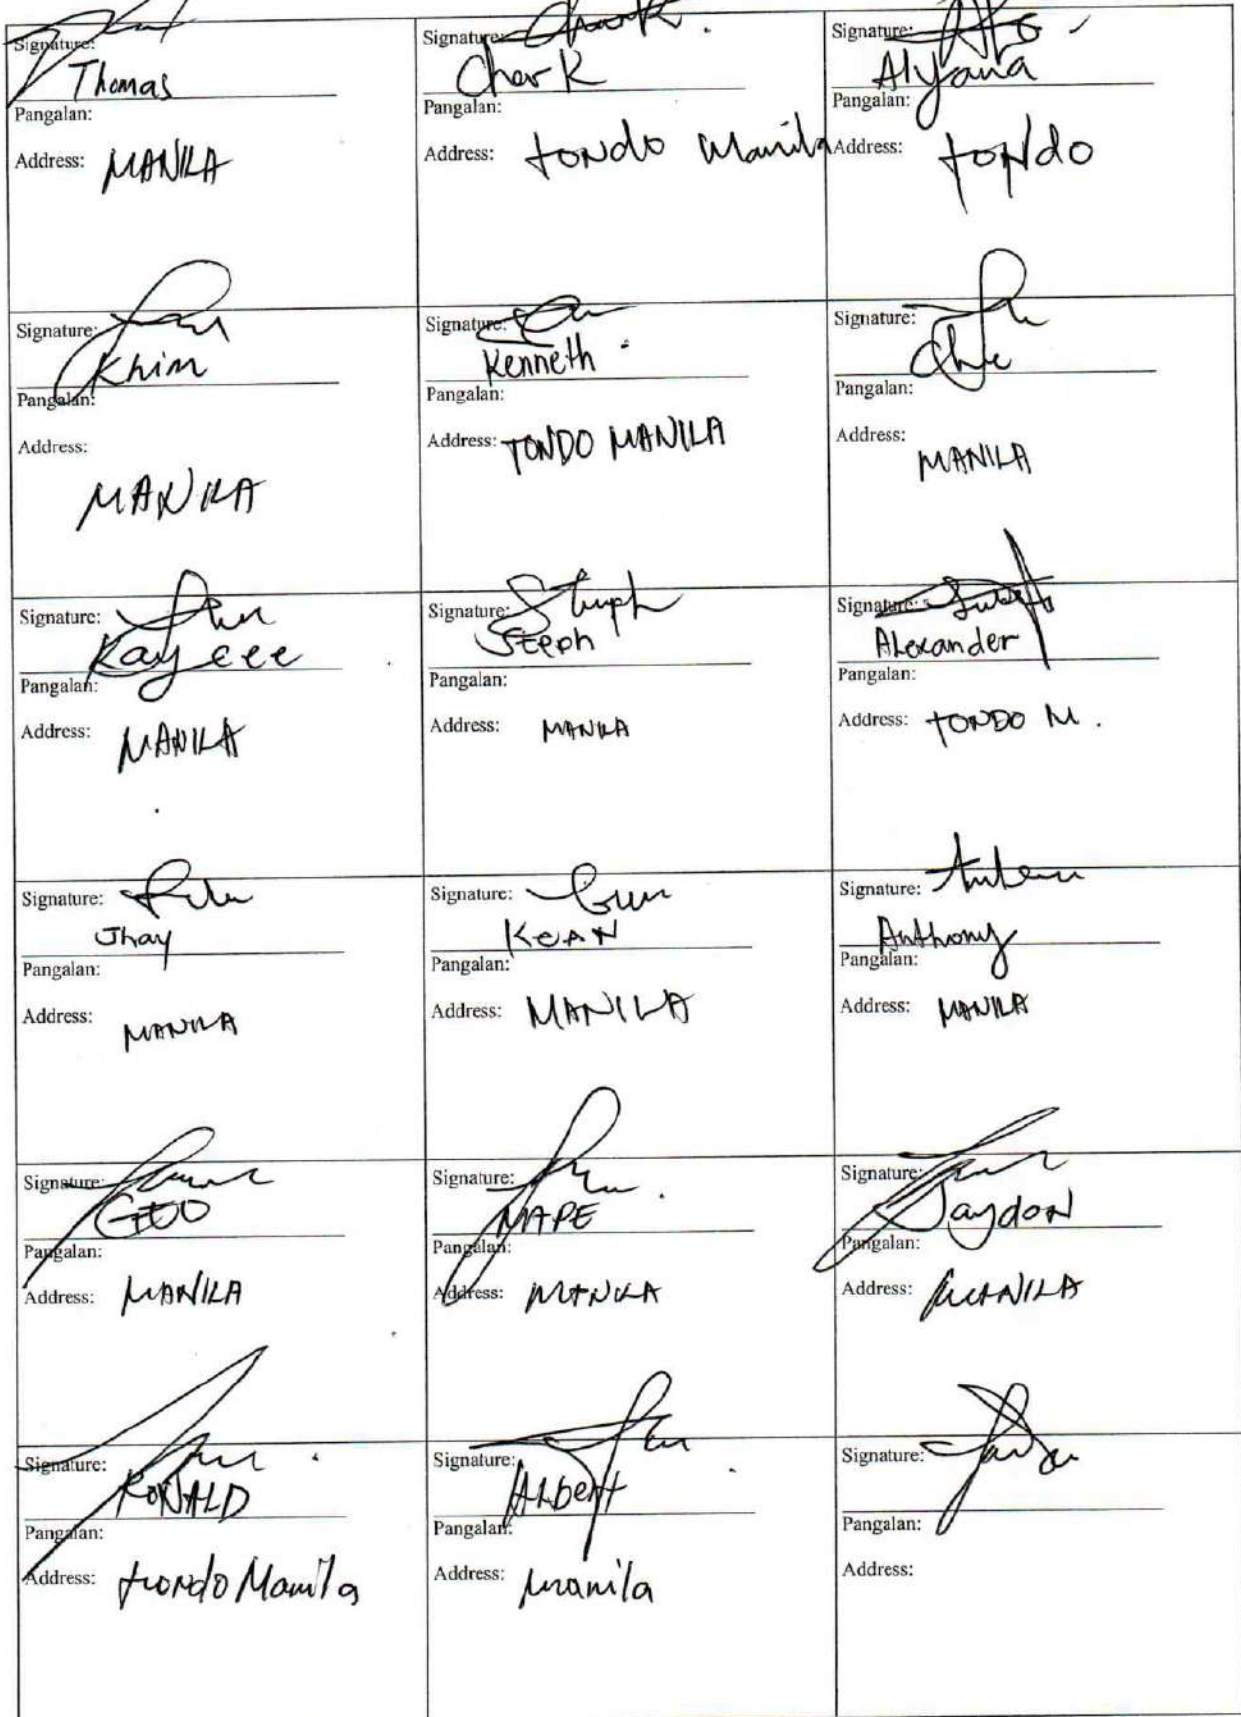 Signature:
Thomas
Pangalan:
Address: MANILA
Signature: Chark
Chark
Pangalan:
Address: tondo Manila
Signature:
Alyana
Pangalan:
Address: tondo
Signature:
Khim
Pangalan:
Address:
MANILA
Signature:
Kenneth
Pangalan:
Address: TONDO MANILA
Signature:
Pangalan:
Address:
MANILA
Signature:
Kayeee
Pangalan:
Address: MANILA
Signature:
Steph
Pangalan:
Address: MANILA
Signature:
Alexander
Pangalan:
Address: TONDO M.
Signature:
Jhay
Pangalan:
Address: MANILA
Signature:
KeAN
Pangalan:
Address: MANILA
Signature:
Anthony
Pangalan:
Address: MANILA
Signature:
GEO
Pangalan:
Address: MANILA
Signature:
MAPE
Pangalan:
Address: MANILA
Signature:
Jaydon
Pangalan:
Address: MANILA
Signature:
RONALD
Pangalan:
Address: tondo Manila
Signature:
Albert
Pangalan:
Address: manila
Signature:
Pangalan:
Address: